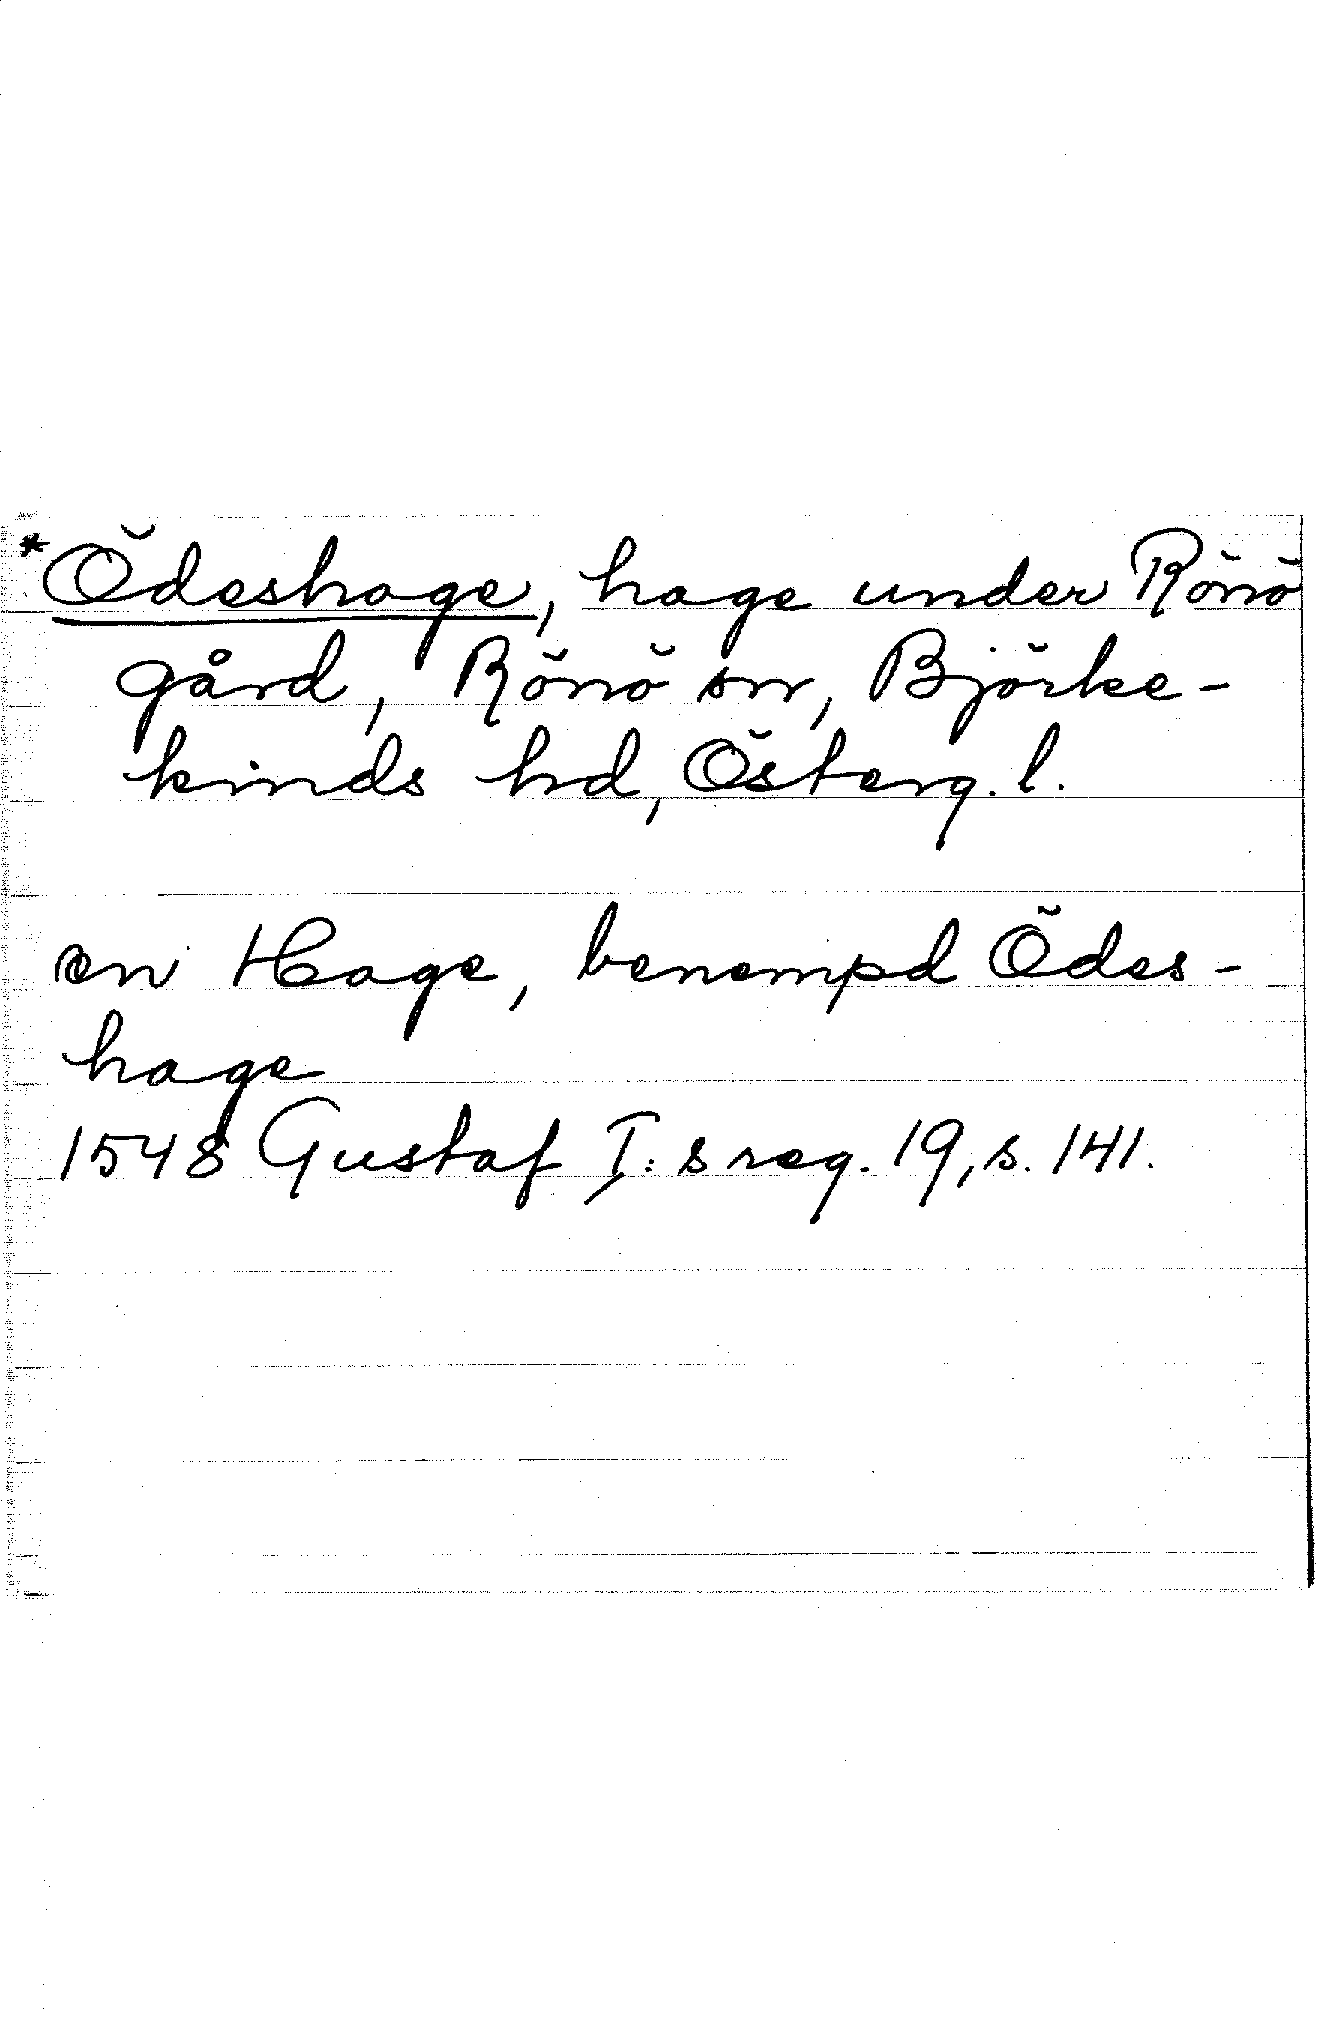 *Ödeshage, hage under Rönö
gård, Rönö sn, Björke-
kinds hd, Österg. l.
en Hage, benempd Ödes-
hage
1548 Gustaf I:s reg. 19, s. 141.